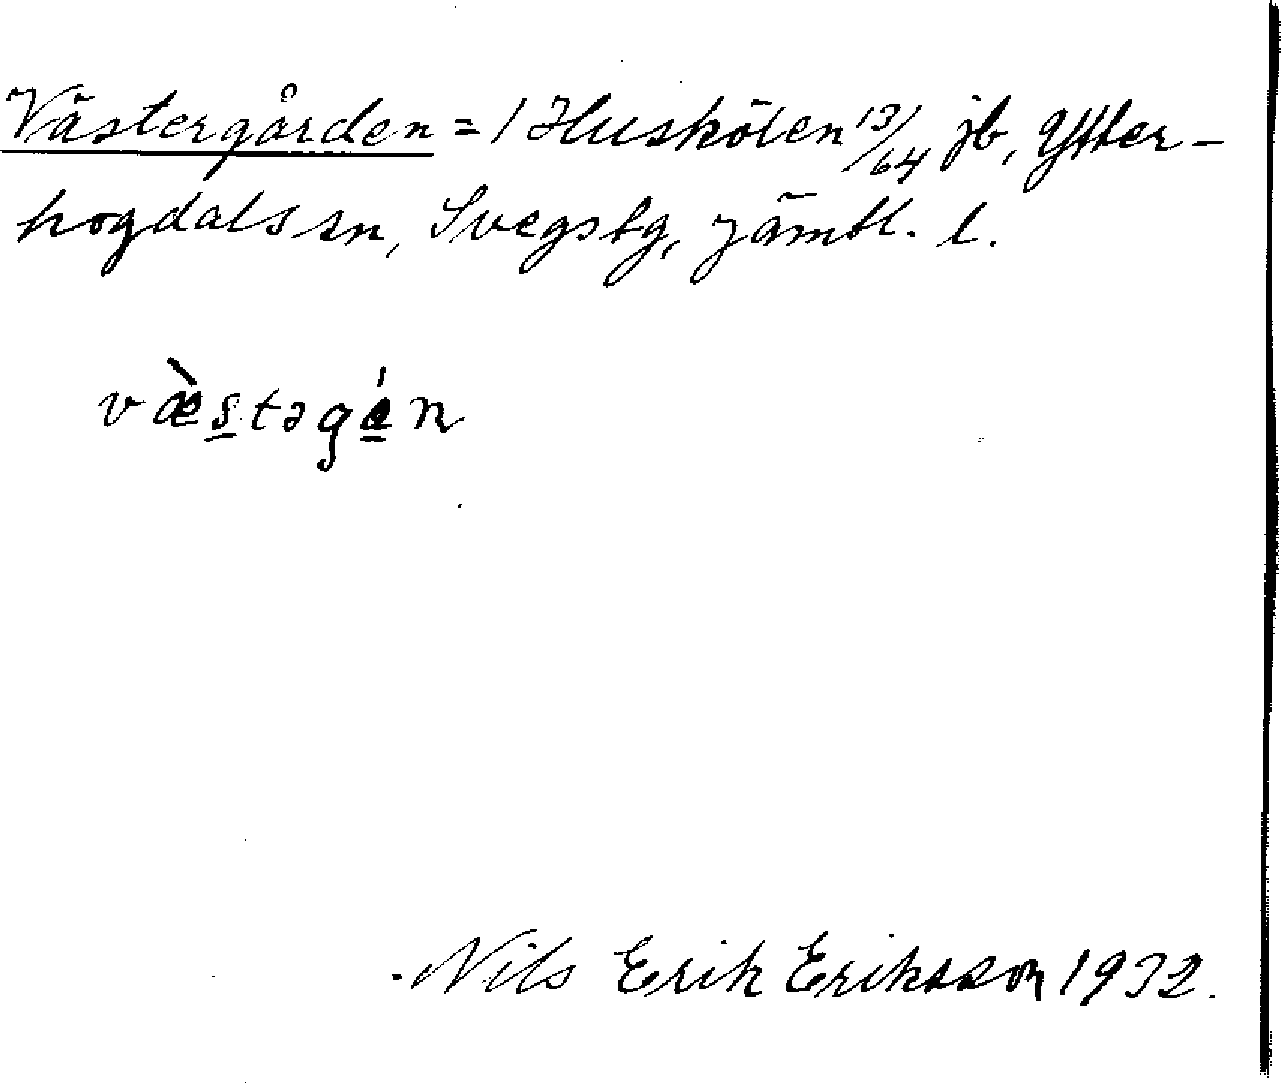 Västergården = 1 Huskölen 13/64 jb, Ytter-
hogdals sn, Svegs tg, Jämtl. l.
væ̀s̲təgá̲n
Nils Erik Eriksson 1932.